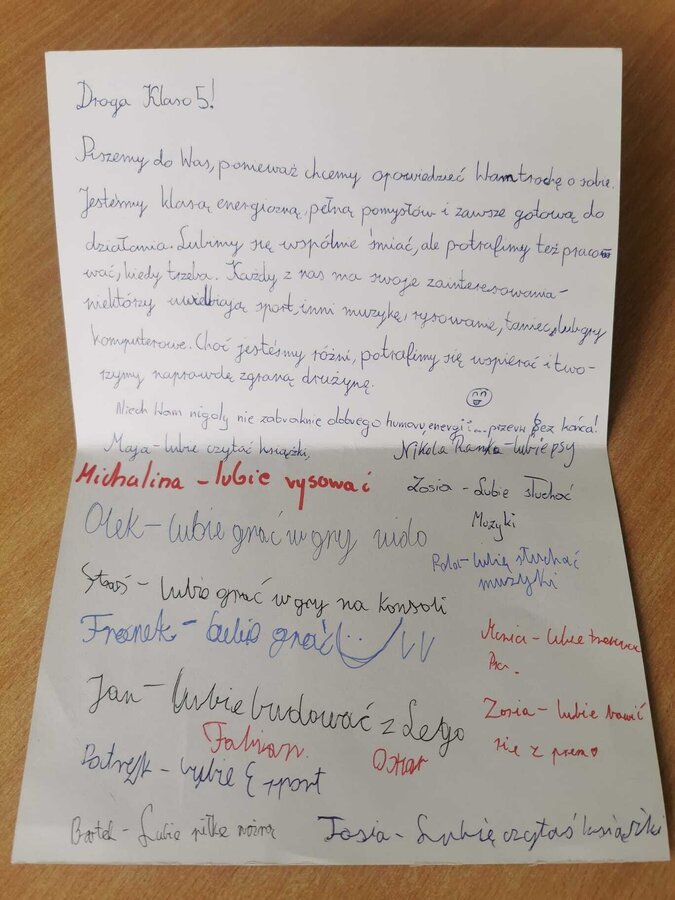 Droga Klaso 5!
Piszemy do Was, ponieważ chcemy opowiedzieć Wam trochę o sobie.
Jesteśmy klasą energiczną, pełną pomysłów i zawsze gotową do
działania. Lubimy się wspólnie śmiać, ale potrafimy też praco
wać, kiedy trzeba. Każdy z nas ma swoje zainteresowania-
niektórzy uwielbiają sport, inni muzykę, rysowanie, taniec, lub gry
komputerowe. Choć jesteśmy różni, potrafimy się wspierać i two-
rzymy naprawdę zgraną drużynę.
Niech Wam nigdy nie zabraknie dobrego humoru, energii i... przerw bez końca!
Maja- lubie czytać książki,
Nikola - lubie psy
Michalina - lubie rysować
Zosia - Lubie słuchać
Muzyki
Olek - lubie grać w gry wido
Pola - lubię słuchać
muzyki
Staś - lubie grać w gry na konsoli
Franek - lubie grać
lubie
Jan - lubie budować z Lego
Zosia - lubie bawić
się z psem
Fabian
Oskar
Patryk - lubie sport
Bartek - Lubie piłke nożną
Tosia - Lubię czytać książki